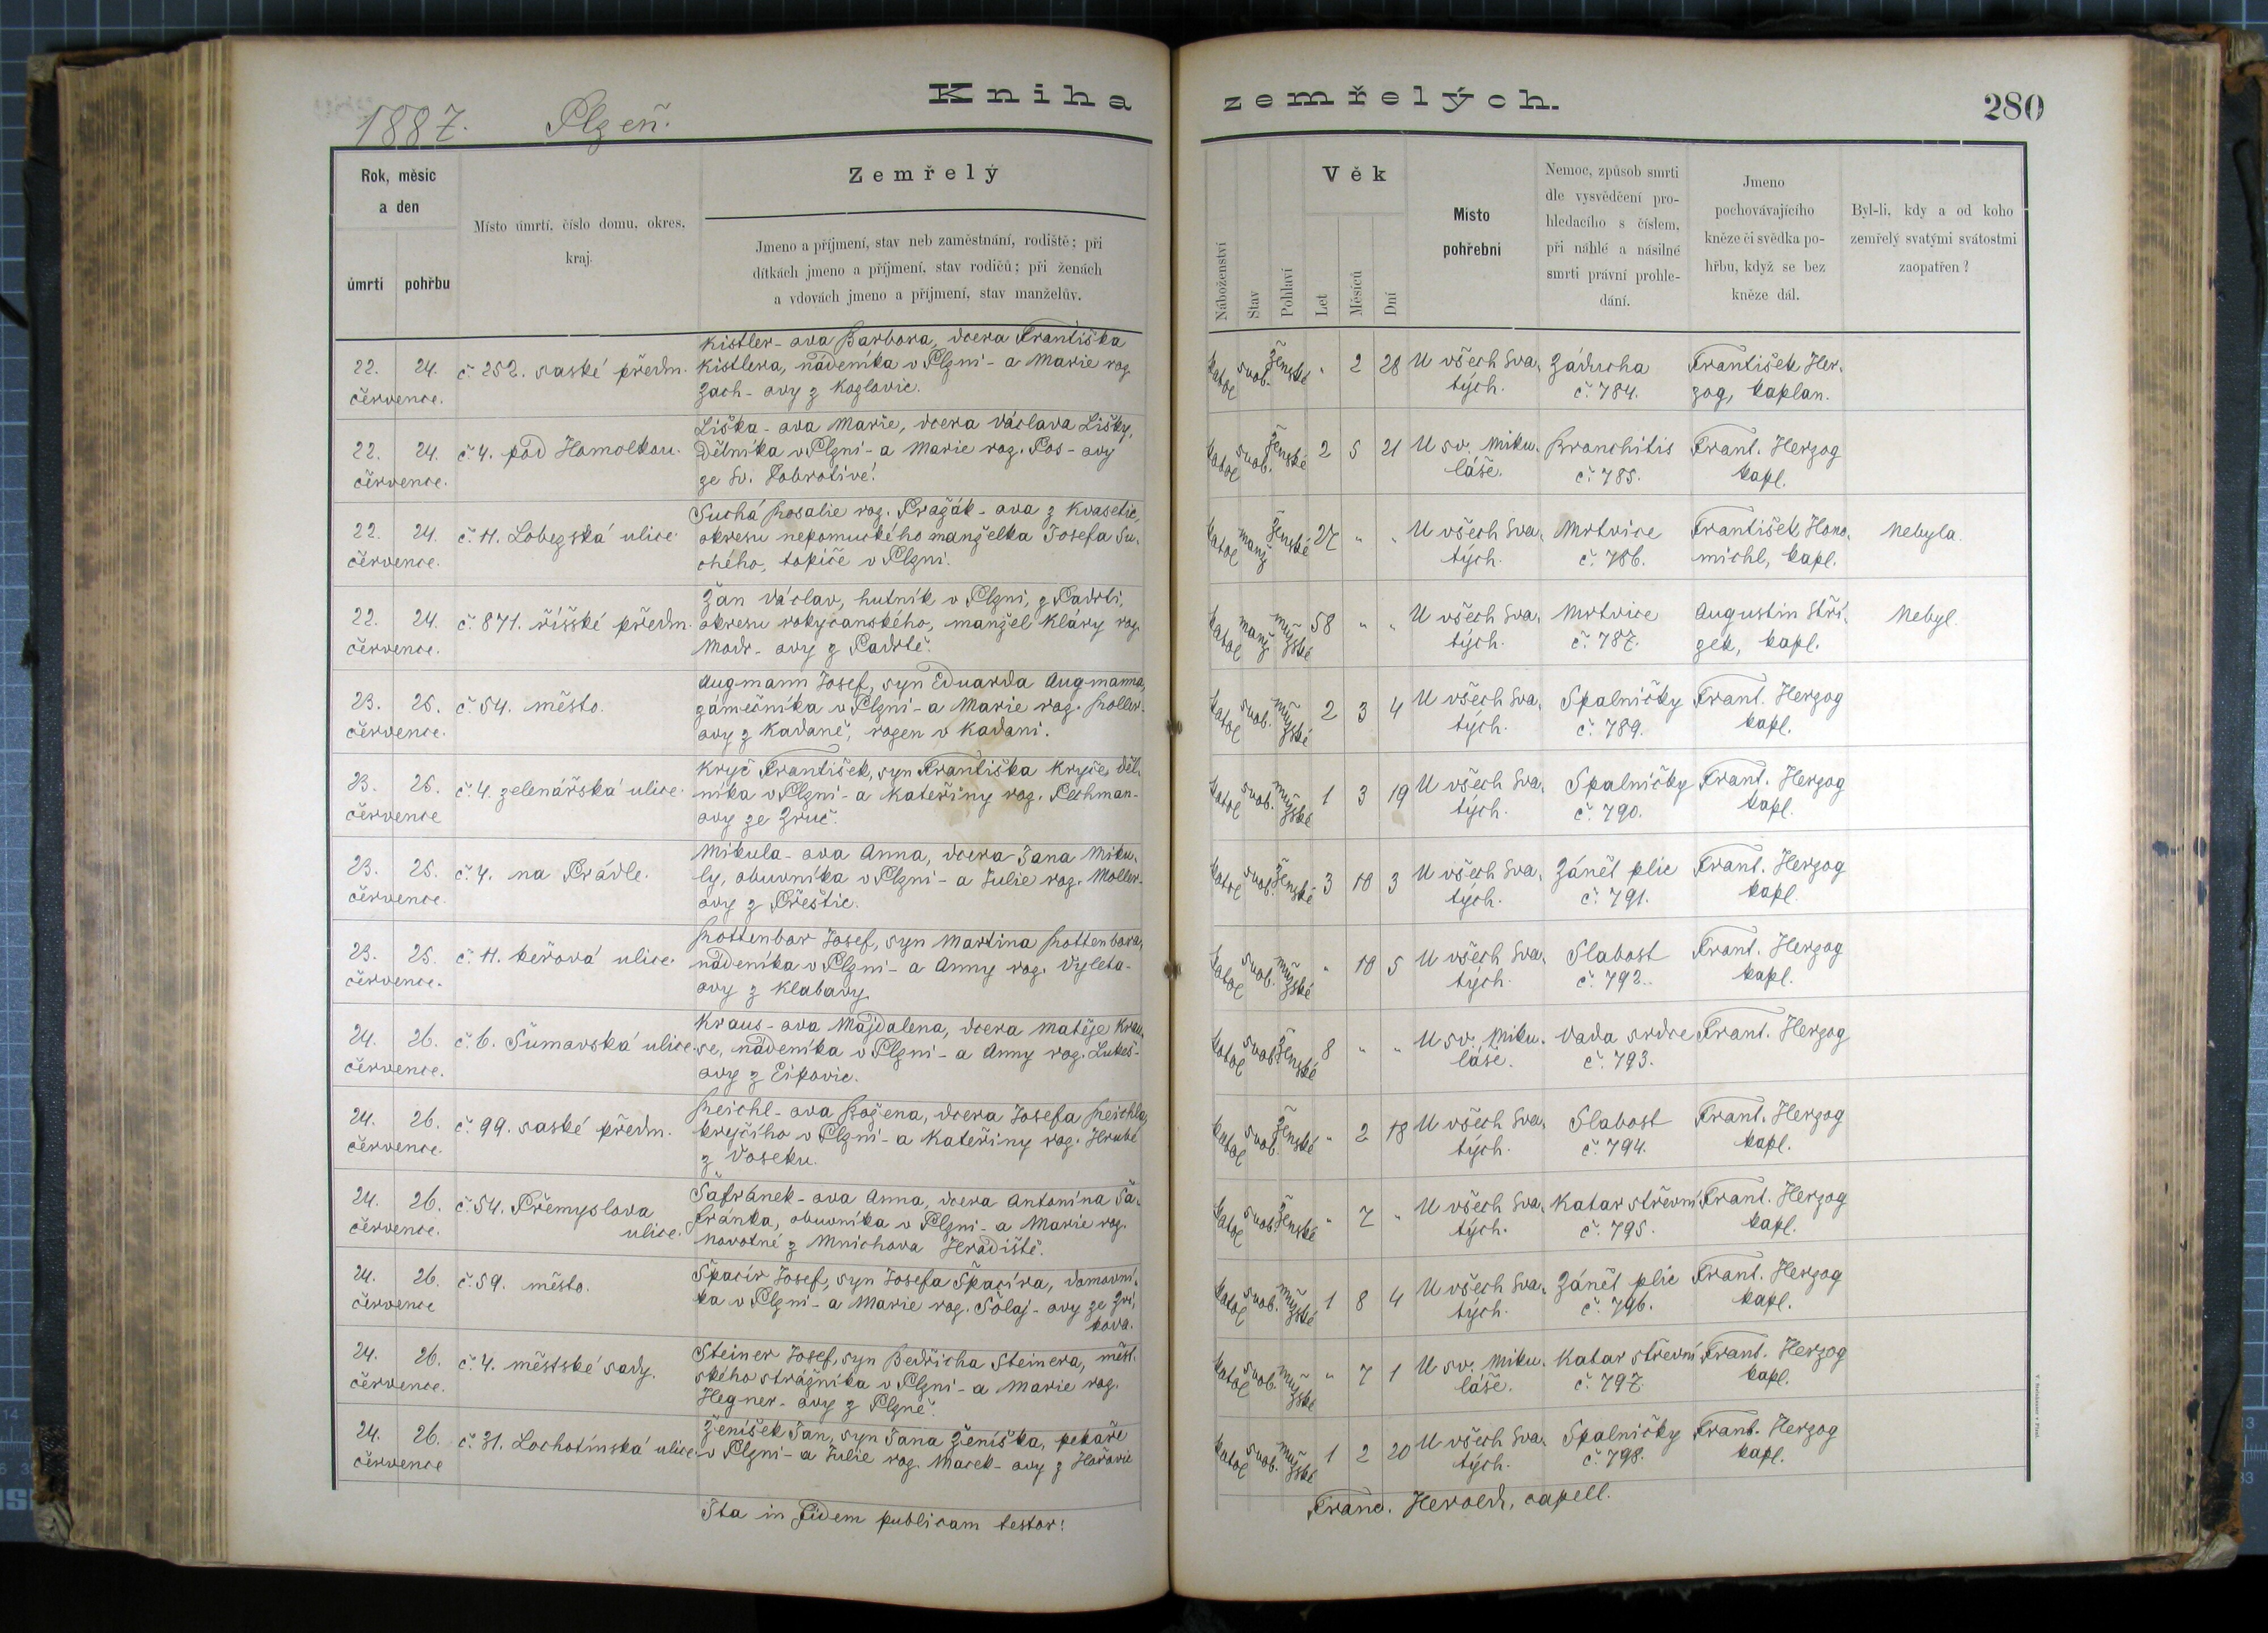 Kniha zemřelých.
280
1887. Plzeň.
Rok, měsíc a den
úmrtí
pohřbu
Místo úmrtí, číslo domu, okres, kraj.
Zemřelý
Jmeno a příjmení, stav neb zaměstnání, rodiště; při
dítkách jmeno a příjmení, stav rodičů; při ženách
a vdovách jmeno a příjmení, stav manželův.
Náboženství
Stav
Pohlaví
Věk
Let
Měsíců
Dní
Místo pohřební
Nemoc, způsob smrti
dle vysvědčení pro-
hledacího s číslem,
při náhlé a násilné
smrti právní prohle-
dání.
Jmeno
pochovávajícího
kněze či svědka po-
hřbu, když se bez
kněze dál.
Byl-li, kdy a od koho
zemřelý svatými svátostmi
zaopatřen?
22. 24. července.
č. 252. saské předm.
Kistler-ova Barbora, dcera Františka
Kistlera, nádeníka v Plzni - a Marie roz.
Zach-ovy z Kozlovic.
katol svob. ženské " 2 28
U všech Sva-
tých.
Záducha
č. 784.
František Her-
zog, kaplan.
22. 24. července.
č. 4. pod Homolkou.
Liška-ova Marie, dcera Václava Lišky,
dělníka v Plzni - a Marie roz. Pos-ovy
ze Sv. Dobrotivé!
katol svob. ženské 2 5 21
U sv. Miku-
láše.
Bronchitis
č. 785.
Frant. Herzog
kapl.
22. 24. července.
č. 11. Lobezská ulice.
Suchá Rosalie roz. Pražák-ova z Kvasetic,
okresu nepomuckého manželka Josefa Su-
chého, topiče v Plzni.
katol manž ženské 27 " "
U všech Sva-
tých.
Mrtvice
č. 786.
František Hono-
michl, kapl.
Nebyla.
22. 24. července.
č. 871. říšské předm.
Žán Václav, hutník v Plzni, z Padrti,
okresu rokycanského, manžel Kláry roz.
Modr-ovy z Padrtě.
katol manž mužské 58 " "
U všech Sva-
tých.
Mrtvice
č. 787.
Augustin Stří-
zek, kapl.
Nebyl.
23. 25. července.
č. 54. město.
Augmann Josef, syn Eduarda Augmanna,
zámečníka v Plzni - a Marie roz. Roller-
ovy z Kadaně, rozen v Kadani.
katol svob. mužské 2 3 4
U všech Sva-
tých.
Spalničky
č. 789.
Frant. Herzog
kapl.
23. 25. července
č. 4. zelenářská ulice.
Kryč František, syn Františka Kryče, děl-
níka v Plzni - a Kateřiny roz. Pechman-
ovy ze Zruč.
katol svob. mužské 1 3 19
U všech Sva-
tých.
Spalničky
č. 790.
Frant. Herzog
kapl.
23. 25. července.
č. 4. na Prádle.
Mikula-ova Anna, dcera Jana Miku-
ly, obuvníka v Plzni - a Julie roz. Moller-
ovy z Přeštic.
katol svob. ženské 3 10 3
U všech Sva-
tých.
Zánět plic
č. 791.
Frant. Herzog
kapl.
23. 25. července.
č. 11. keřová ulice.
Rottenbor Josef, syn Martina Rottenbora,
nádeníka v Plzni - a Anny roz. Vyleta-
ovy z Klabavy
katol svob. mužské " 10 5
U všech Sva-
tých.
Slabost
č. 792.
Frant. Herzog
kapl.
24. 26. července.
č. 6. Šumavská ulice.
Kraus-ova Majdalena, dcera Matěje Krau-
se, nádeníka v Plzni - a Anny roz. Lukeš-
ovy z Ejpovic.
katol svob. ženské 8 " "
U sv. Miku-
láše.
Vada srdce
č. 793.
Frant. Herzog
24. 26. července.
č. 99. saské předm.
Reichl-ova Božena, dcera Josefa Reichla,
krejčího v Plzni - a Kateřiny roz. Hrubé
z Voseku.
katol svob. ženské " 2 18
U všech Sva-
tých.
Slabost
č. 794.
Frant. Herzog
kapl.
24. 26. července.
č. 54. Přemyslova
ulice.
Šafránek-ova Anna, dcera Antonína Ša-
fránka, obuvníka v Plzni - a Marie roz.
Novotné z Mnichova Hradiště.
katol svob. ženské " 7 "
U všech Sva-
tých.
Katar střevní
č. 795.
Frant. Herzog
kapl.
24. 26. července
č. 59. město.
Špacír Josef, syn Josefa Špacíra, domovní-
ka v Plzni - a Marie roz. Šolaj-ovy ze Zví-
kova.
katol svob. mužské 1 8 4
U všech Sva-
tých.
Zánět plic
č. 796.
Frant. Herzog
kapl.
24. 26. července.
č. 4. městské sady.
Steiner Josef, syn Bedřicha Steinera, měst-
ského strážníka v Plzni - a Marie roz.
Hegner-ovy z Plzně.
katol svob. mužské " 7 1
U sv. Miku-
láše.
Katar střevní
č. 797.
Frant. Herzog
kapl.
24. 26. července
č. 31. Lochotínská ulice.
Ženíšek Jan, syn Jana Ženíška, pekaře
v Plzni - a Julie roz. Macek-ovy z Hořovic
katol svob. mužské 1 2 20
U všech Sva-
tých.
Spalničky
č. 798.
Frant. Herzog
kapl.
Ita in fidem publicam testor:
Franc. Herold, capell.